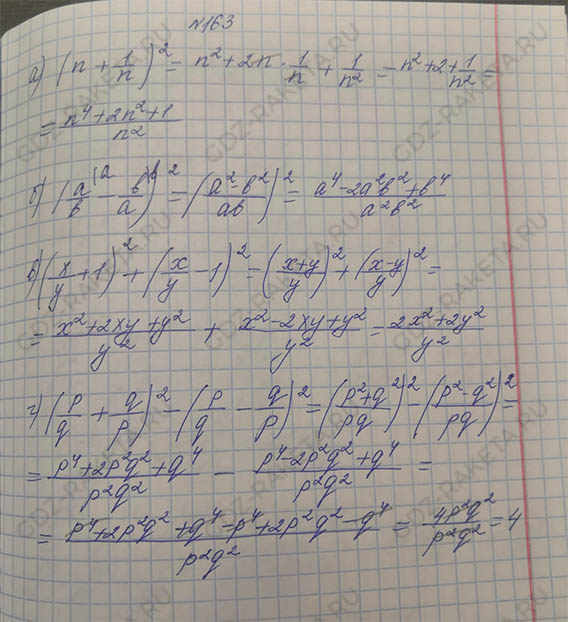 №163
а) (n + 1/n)² = n² + 2·n · 1/n + 1/n² = n² + 2 + 1/n² =
= (n⁴ + 2n² + 1)/n²
б) (a/b - b/a)² = ((a² - b²)/ab)² = (a⁴ - 2a²b² + b⁴)/a²b²
в) (x/y + 1)² + (x/y - 1)² = ((x+y)/y)² + ((x-y)/y)² =
= (x² + 2xy + y²)/y² + (x² - 2xy + y²)/y² = (2x² + 2y²)/y²
г) (p/q + q/p)² - (p/q - q/p)² = ((p² + q²)/pq)² - ((p² - q²)/pq)² =
= (p⁴ + 2p²q² + q⁴)/p²q² - (p⁴ - 2p²q² + q⁴)/p²q² =
= (p⁴ + 2p²q² + q⁴ - p⁴ + 2p²q² - q⁴)/p²q² = 4p²q²/p²q² = 4
GDZ-RAKETA.RU